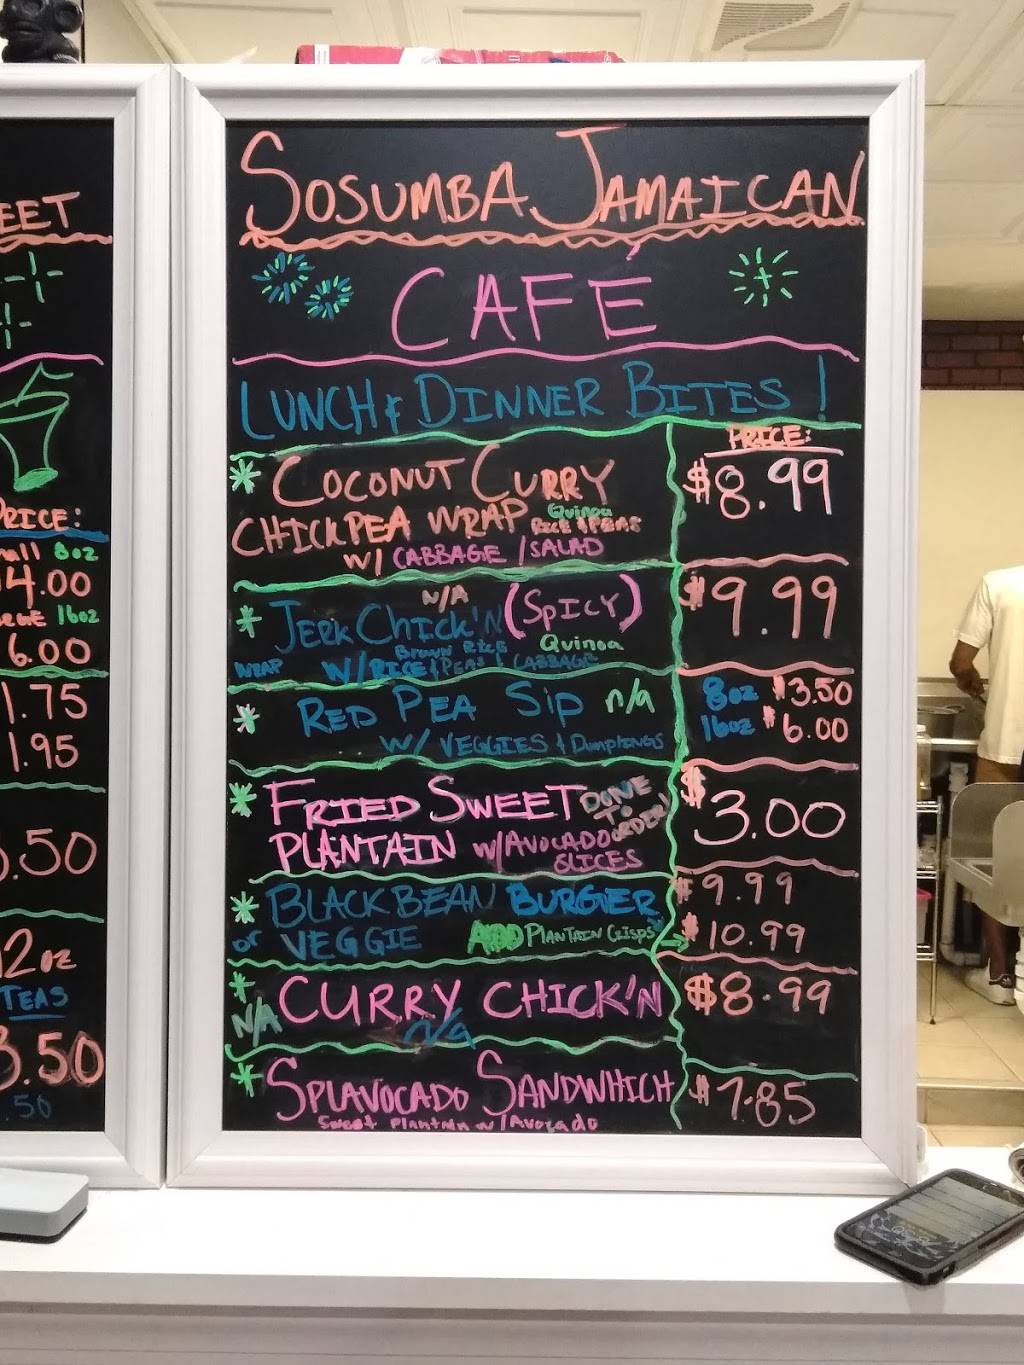 EET
PRICE:
8oz
4.00
16oz
6.00
1.75
1.95
.50
2oz
TEAS
3.50
.50
SOSUMBA JAMAICAN
CAFÉ
LUNCH & DINNER BITES!
PRICE:
* COCONUT CURRY $8.99
CHICKPEA WRAP Quinoa RICE & PEAS
W/ CABBAGE / SALAD
* JERK CHICK'N N/A (SPICY) $9.99
Brown RICE Quinoa
WRAP W/RICE & PEAS & CABBAGE
* RED PEA SIP N/A 8oz $3.50
W/ VEGGIES & Dumplings 16oz $6.00
* FRIED SWEET DONE TO ORDER! $3.00
PLANTAIN W/AVOCADO SLICES
* BLACK BEAN BURGER $9.99
or VEGGIE ADD PLANTAIN CRISPS $10.99
* N/A CURRY CHICK'N $8.99
N/A
* SPLAVOCADO SANDWHICH $7.85
Sweet Plantain w/Avocado